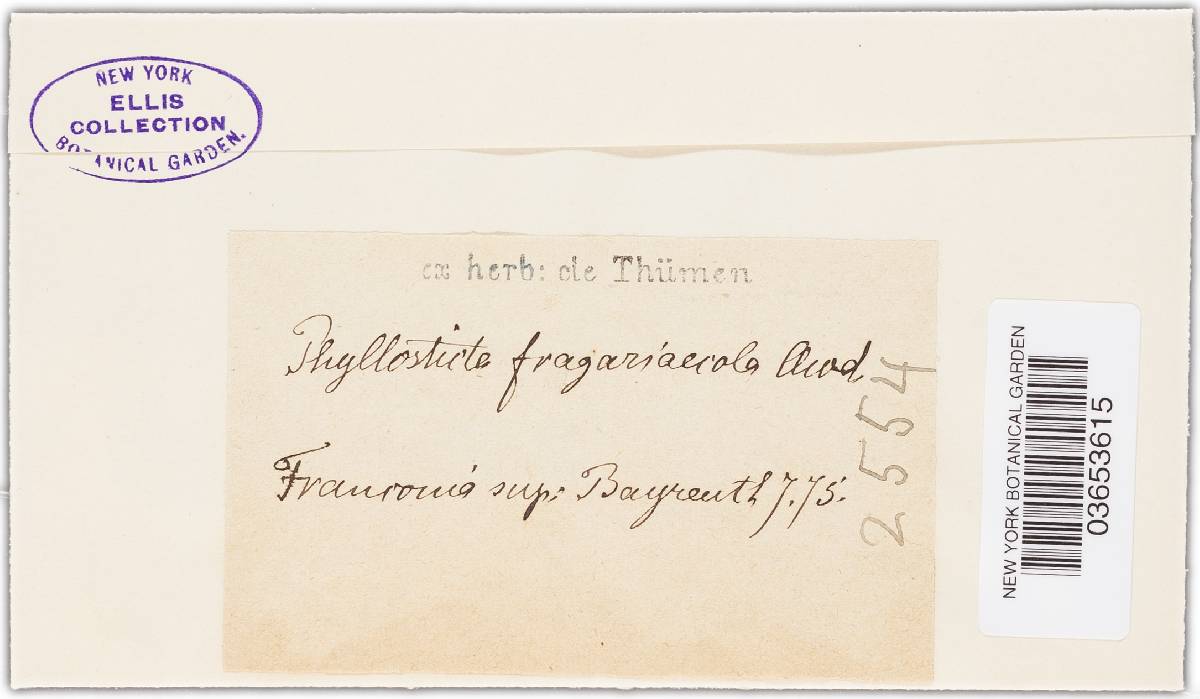 NEW YORK
ELLIS
COLLECTION
BOTANICAL GARDEN.
ex herb: de Thümen
Phyllosticta fragariaecola Awd.
Franconia sup: Bayreuth 7.75.
2554
NEW YORK BOTANICAL GARDEN
03653615